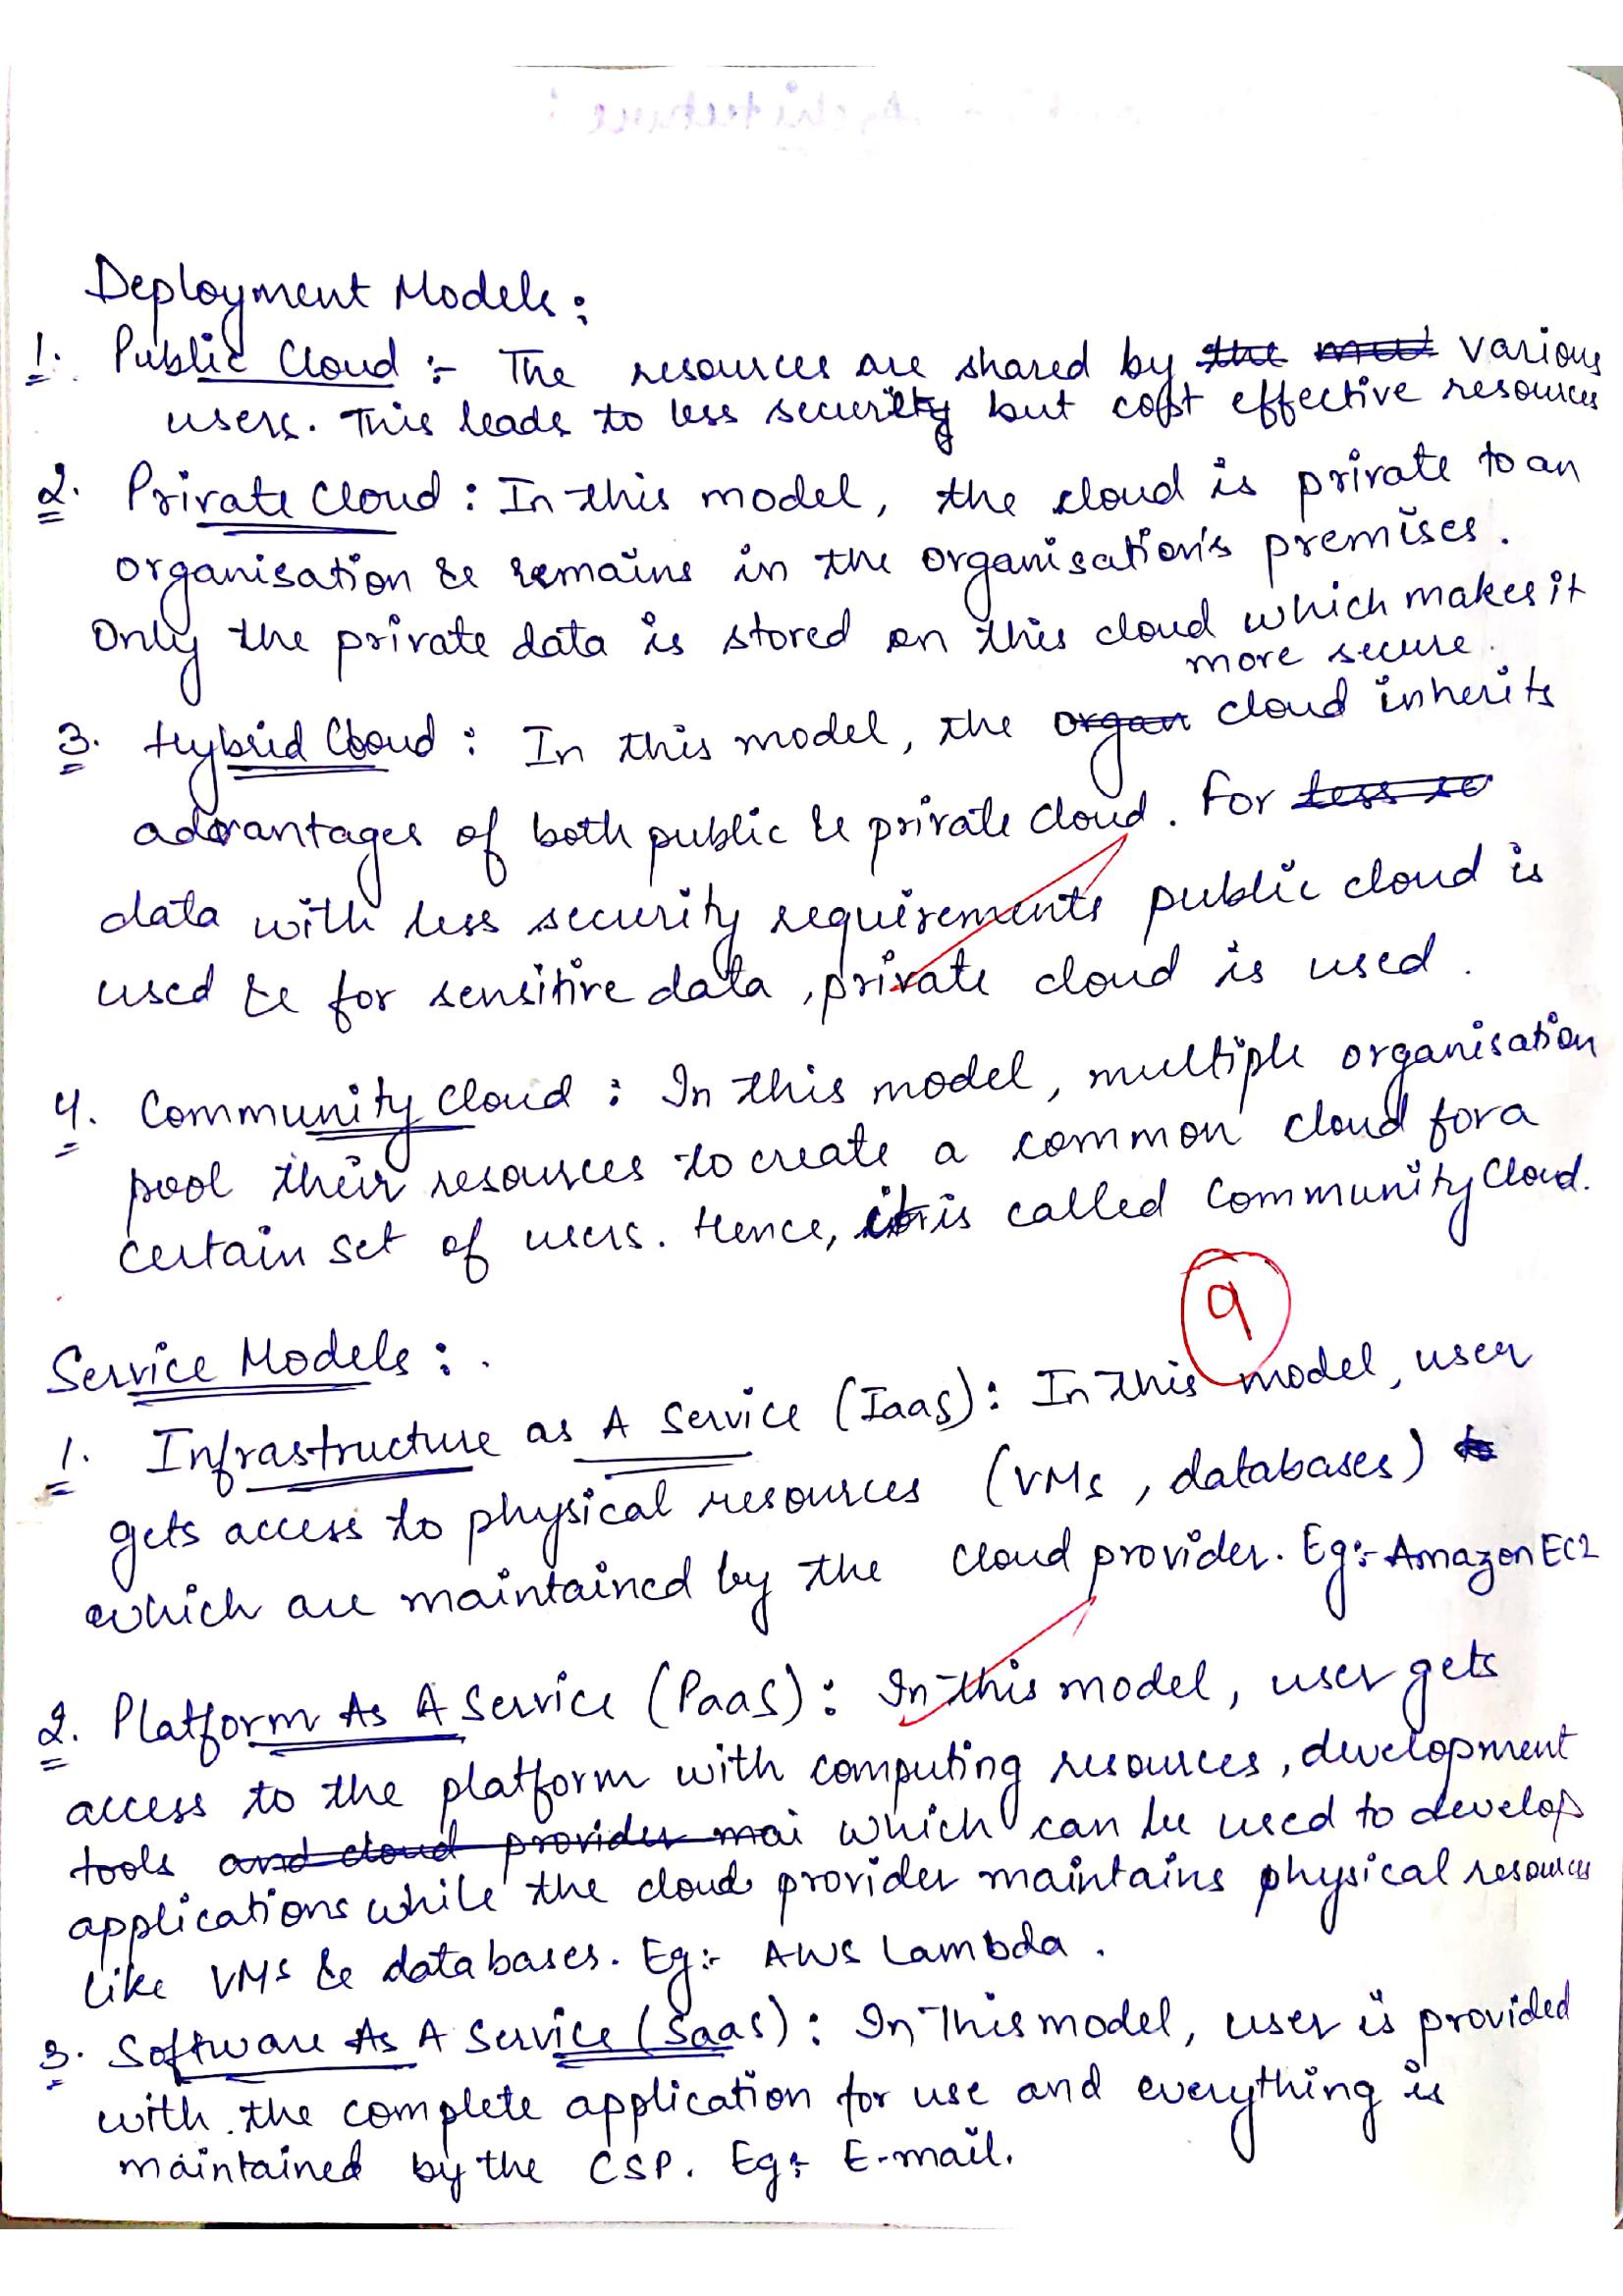 Deployment Models:
1. Public Cloud :- The resources are shared by various
users. This leads to less security but cost effective resources
2. Private Cloud : In this model, the cloud is private to an
organisation & remains in the organisation's premises.
Only the private data is stored on this cloud which makes it
more secure.
3. Hybrid Cloud : In this model, the organ cloud inherits
advantages of both public & private cloud. For less se
data with less security requirements public cloud is
used & for sensitive data, private cloud is used.
4. Community Cloud : In this model, multiple organisation
pool their resources to create a common cloud for a
certain set of users. Hence, it is called Community Cloud.
9
Service Models :.
1. Infrastructure as A Service (IaaS): In this model, user
gets access to physical resources (VMs, databases) to
which are maintained by the cloud provider. Eg:- Amazon EC2
2. Platform As A Service (PaaS): In this model, user gets
access to the platform with computing resources, development
tools and cloud provider mai which can be used to develop
applications while the cloud provider maintains physical resources
like VMs & databases. Eg:- AWS Lambda.
3. Software As A Service (SaaS): In this model, user is provided
with the complete application for use and everything is
maintained by the CSP. Eg:- E-mail.